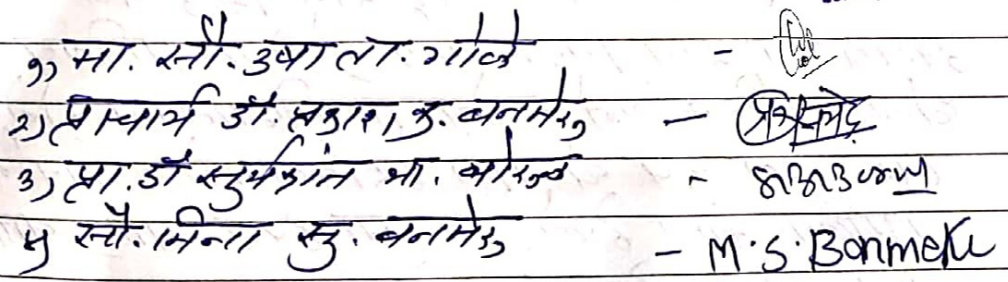 १) मा. सौ. उषा ता. गोले -
२) प्राचार्य डॉ. प्रकाश कृ. बनमेरु -
३) प्रा. डॉ सुर्यकांत भा. -
४) सौ. मिना सु. बनमेरु - M.S. Banmeru